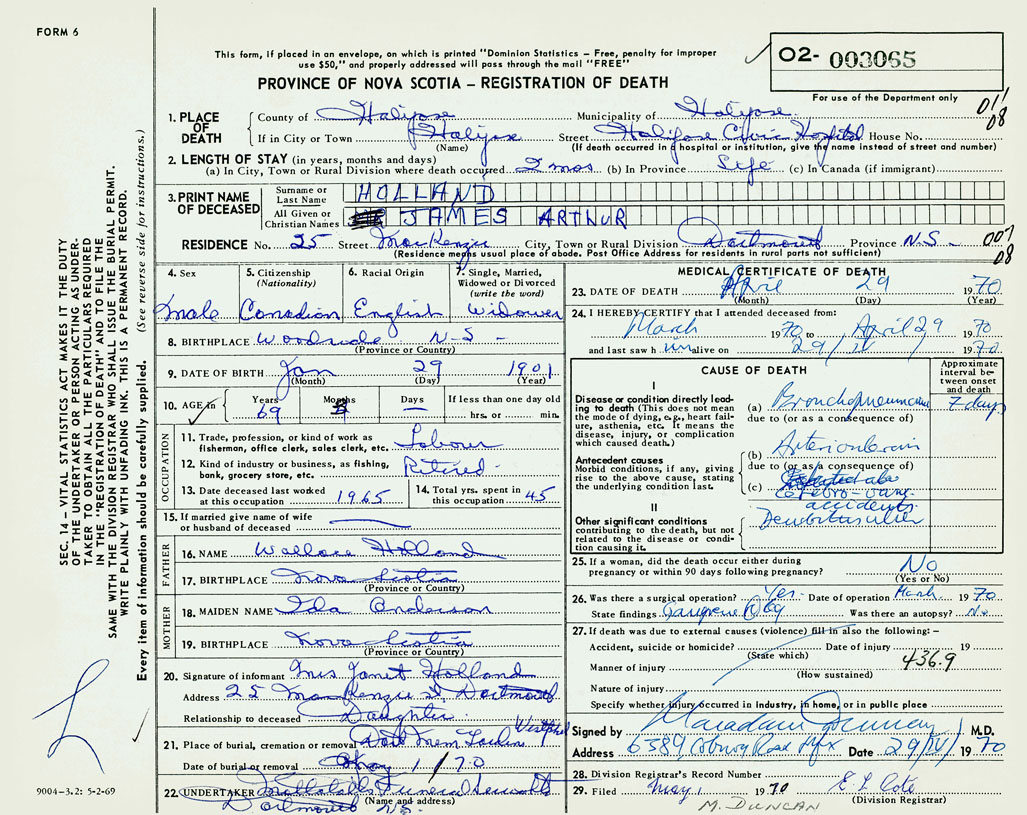 FORM 6
This form, if placed in an envelope, on which is printed "Dominion Statistics – Free, penalty for improper
use $50," and properly addressed will pass through the mail "FREE"
02- 003065
PROVINCE OF NOVA SCOTIA – REGISTRATION OF DEATH
For use of the Department only
011
08
1. PLACE OF DEATH
County of Halifax Municipality of Halifax
If in City or Town Halifax Street Halifax Civic Hospital House No.
(Name) (If death occurred in hospital or institution, give the name instead of street and number)
2. LENGTH OF STAY (in years, months and days)
(a) In City, Town or Rural Division where death occurred 2 mos (b) In Province Life (c) In Canada (if immigrant)
3. PRINT NAME OF DECEASED
Surname or Last Name HOLLAND
All Given or Christian Names JAMES ARTHUR
RESIDENCE No. 25 Street MacKenzie City, Town or Rural Division Dartmouth Province N.S. 007
08
(Residence means usual place of abode. Post Office Address for residents in rural parts not sufficient)
4. Sex
Male
5. Citizenship
(Nationality)
Canadian
6. Racial Origin
English
7. Single, Married,
Widowed or Divorced
(write the word)
Widower
8. BIRTHPLACE Woodside N-S -
(Province or Country)
9. DATE OF BIRTH Jan 29 1901
(Month) (Day) (Year)
10. AGE in Years 69 Months Days — If less than one day old
hrs. or min.
OCCUPATION
11. Trade, profession, or kind of work as
fisherman, office clerk, sales clerk, etc. Labour
12. Kind of industry or business, as fishing,
bank, grocery store, etc. Retired -
13. Date deceased last worked
at this occupation 1965
14. Total yrs. spent in
this occupation 45
15. If married give name of wife
or husband of deceased
FATHER
16. NAME Wallace Holland
17. BIRTHPLACE Nova Scotia
(Province or Country)
MOTHER
18. MAIDEN NAME Ida Anderson
19. BIRTHPLACE Nova Scotia
(Province or Country)
20. Signature of informant Mrs Janet Holland
Address 25 MacKenzie St Dartmouth
Relationship to deceased Daughter
21. Place of burial, cremation or removal Dart Mem Westphal
Date of burial or removal May 1 / 70
22. UNDERTAKER Funeral
(Name and address)
Dartmouth N.S.
MEDICAL CERTIFICATE OF DEATH
23. DATE OF DEATH April 29 1970
(Month) (Day) (Year)
24. I HEREBY CERTIFY that I attended deceased from:
March 1970 to April 29 1970
and last saw him alive on 29/IV/ 1970
CAUSE OF DEATH
Approximate
interval be-
tween onset
and death
I
Disease or condition directly lead-
ing to death (This does not mean
the mode of dying, e.g., heart fail-
ure, asthenia, etc. It means the
disease, injury, or complication
which caused death.)
(a) Bronchopneumonia 7 days
due to (or as a consequence of)
Antecedent causes
Morbid conditions, if any, giving
rise to the above cause, stating
the underlying condition last.
(b)
due to (or as a consequence of)
(c)
cerebro-vasc.
accidents
II
Other significant conditions
contributing to the death, but not
related to the disease or condi-
tion causing it.
Decubitus ulcer
25. If a woman, did the death occur either during
pregnancy or within 90 days following pregnancy? No
(Yes or No)
26. Was there a surgical operation? Yes. Date of operation March 1970
State findings Gangrene leg Was there an autopsy? No
27. If death was due to external causes (violence) fill in also the following: –
Accident, suicide or homicide? Date of injury 19
(State which)
436.9
Manner of injury
(How sustained)
Nature of injury
Specify whether injury occurred in industry, in home, or in public place
Signed by Duncan M.D.
Address 6389 Coburg Road Hfx Date 29/IV/ 1970
28. Division Registrar's Record Number
29. Filed May 1 1970 E. L. Cote
(Division Registrar)
M. DUNCAN
SEC. 14 – VITAL STATISTICS ACT MAKES IT THE DUTY
OF THE UNDERTAKER OR PERSON ACTING AS UNDER-
TAKER TO OBTAIN ALL THE PARTICULARS REQUIRED
IN THE "REGISTRATION OF DEATH" AND TO FILE THE
SAME WITH THE DIVISION REGISTRAR WHO SHALL ISSUE THE BURIAL PERMIT.
WRITE PLAINLY WITH UNFADING INK. THIS IS A PERMANENT RECORD.
Every item of information should be carefully supplied. (See reverse side for instructions.)
9004-3.2: 5-2-69